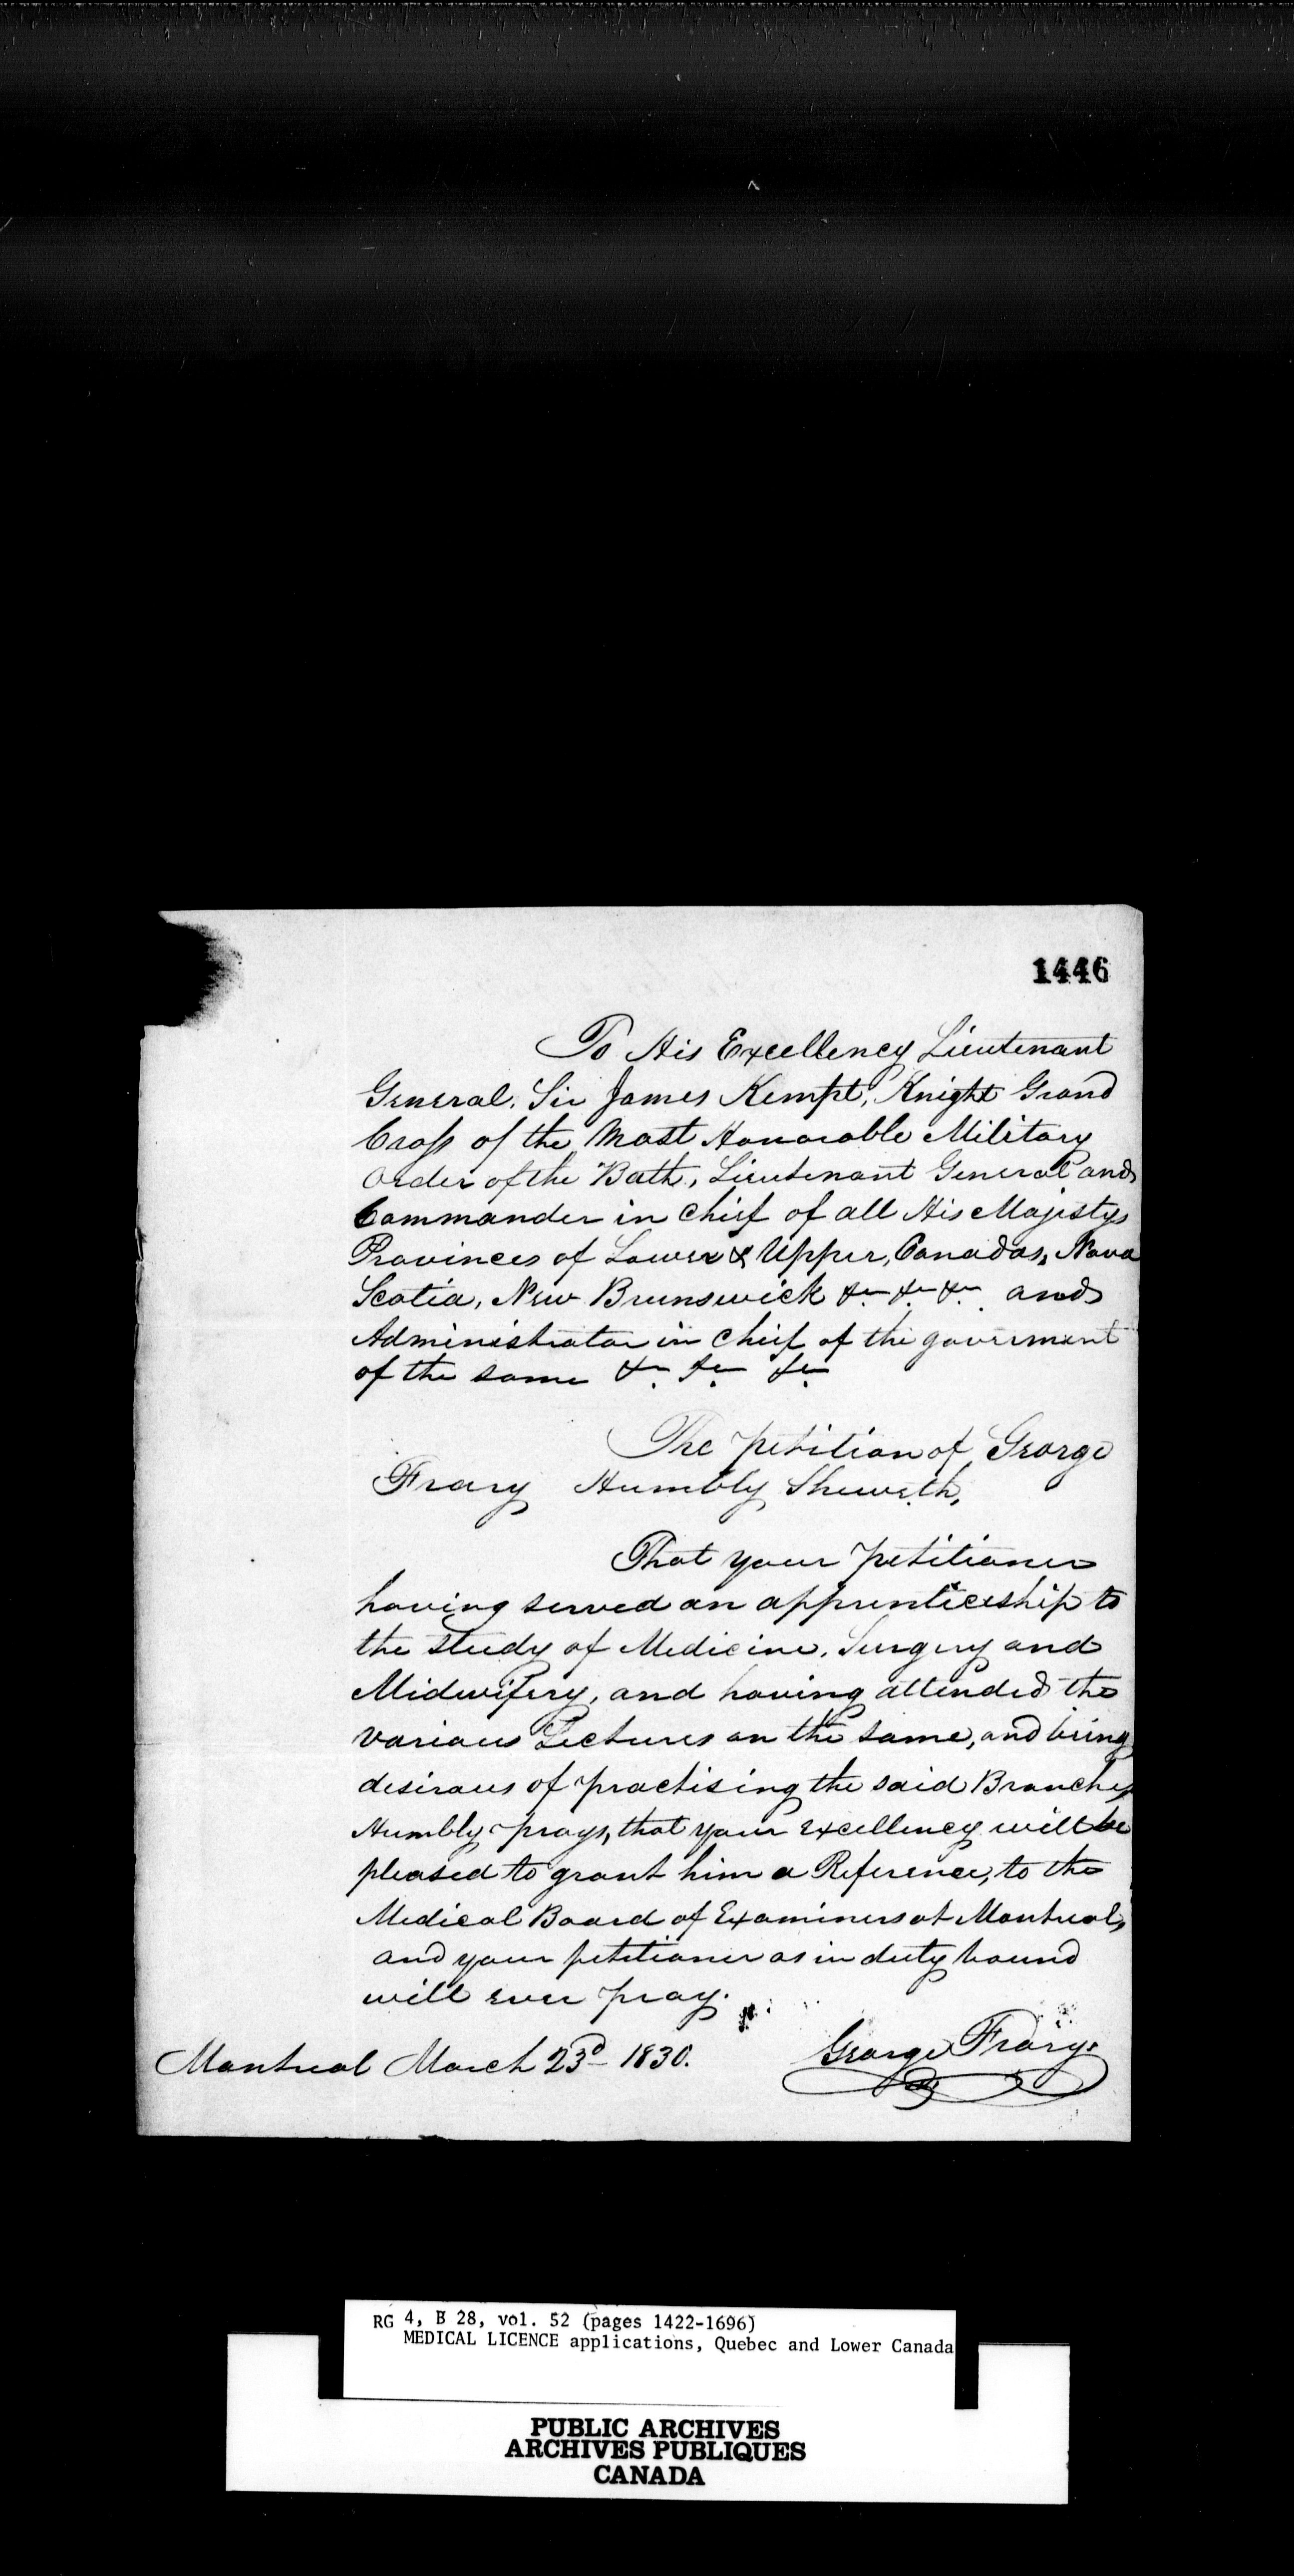 1446
To His Excellency Lieutenant
General. Sir James Kempt, Knight Grand
Cross of the Most Honorable Military
Order of the Bath, Lieutenant General and
Commander in Chief of all His Majestys
Provinces of Lower & Upper, Canadas, Nova
Scotia, New Brunswick &c &c &c and
Administrator in Chief of the goverment
of the same &c. &c. &c.
The petition of George
Frary Humbly Sheweth,
That your petitioner
having served an apprenticeship to
the study of Medicine, Surgery and
Midwifery, and having attended the
various Lectures on the same, and being
desirous of practising the said Branches
Humbly prays, that your Excellency will be
pleased to grant him a Reference, to the
Medical Board of Examiners at Montreal,
and your petitioner as in duty bound
will ever pray.
Montreal March 23d 1830. George Frary.
RG 4, B 28, vol. 52 (pages 1422-1696)
MEDICAL LICENCE applications, Quebec and Lower Canada
PUBLIC ARCHIVES
ARCHIVES PUBLIQUES
CANADA